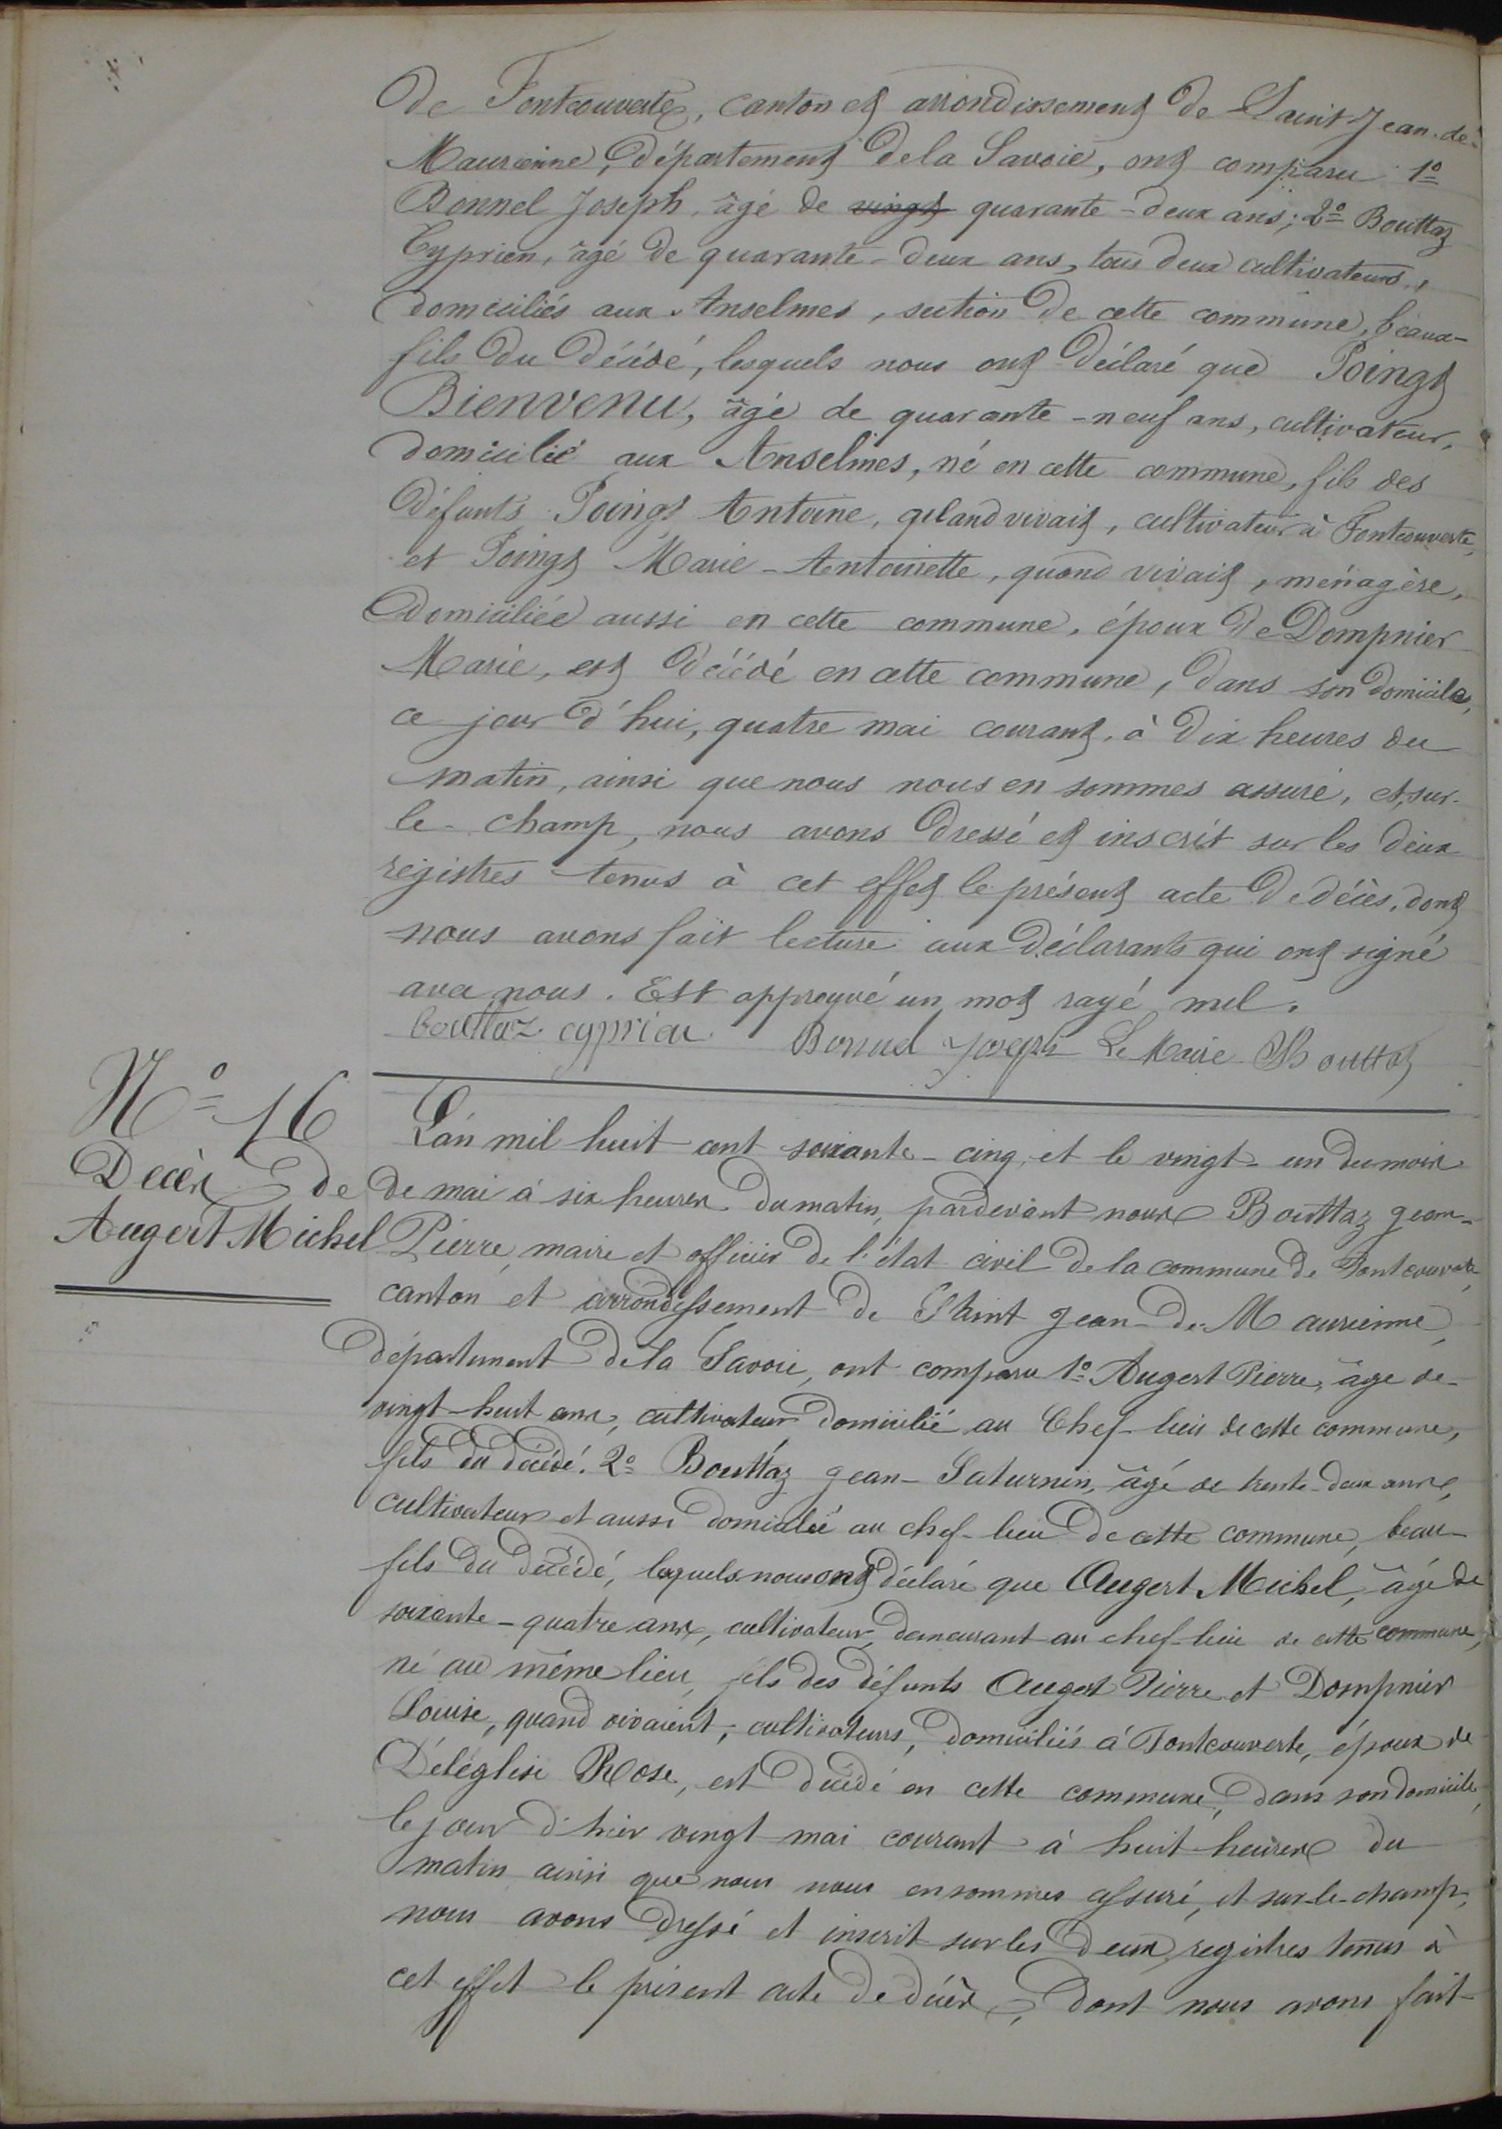 de Fontcouverte, canton et arrondissement de Saint Jean-de-
Maurienne, département de la Savoie, ont comparu 1º
Bonnel Joseph, âgé de vingt quarante-deux ans; 2º Bouttaz
Cyprien, âgé de quarante-deux ans, tous deux cultivateurs,
domiciliés aux Anselmes, section de cette commune, beaux-
fils du décédé, lesquels nous ont déclaré que Poingt
Bienvenu, âgé de quarante-neuf ans, cultivateur,
domicilié aux Anselmes, né en cette commune, fils des
défunts Poingt Antoine, quand vivait, cultivateur à Fontcouverte,
et Poingt Marie-Antoinette, quand vivait, ménagère,
domiciliée aussi en cette commune, époux de Dompnier
Marie, est décédé en cette commune, dans son domicile,
ce jour d'hui, quatre mai courant, à dix heures du
matin, ainsi que nous nous en sommes assuré, et, sur-
le-champ, nous avons dressé et inscrit sur les deux
registres tenus à cet effet le présent acte de décès, dont
nous avons fait lecture aux déclarants qui ont signé
avec nous. Est approuvé un mot rayé nul.
bouttaz cyprien Bonnel Joseph Le Maire Bouttaz
Nº 16
Décès de
Augert Michel
L'an mil huit cent soixante-cinq, et le vingt-un du mois
de mai à six heures du matin, pardevant nous Bouttaz Jean-
Pierre, maire et officier de l'état civil de la commune de Fontcouverte,
canton et arrondissement de Saint Jean-de-Maurienne,
département de la Savoie, ont comparu 1º Augert Pierre, âgé de
vingt-huit ans, cultivateur domicilié au Chef-lieu de cette commune,
fils du décédé. 2º Bouttaz Jean-Saturnin, âgé de trente-deux ans,
cultivateur et aussi domicilié au chef-lieu de cette commune, beau-
fils du décédé, lesquels nous ont déclaré que Augert Michel, âgé de
soixante-quatre ans, cultivateur, demeurant au chef-lieu de cette commune,
né au même lieu, fils des défunts Augert Pierre et Dompnier
Louise, quand vivaient, cultivateurs, domiciliés à Fontcouverte, époux de
Déléglise Rose, est décédé en cette commune, dans son domicile,
le jour d'hier vingt mai courant à huit heures du
matin ainsi que nous nous en sommes assuré, et sur-le-champ,
nous avons dressé et inscrit sur les deux registres tenus à
cet effet le présent acte de décès, dont nous avons fait